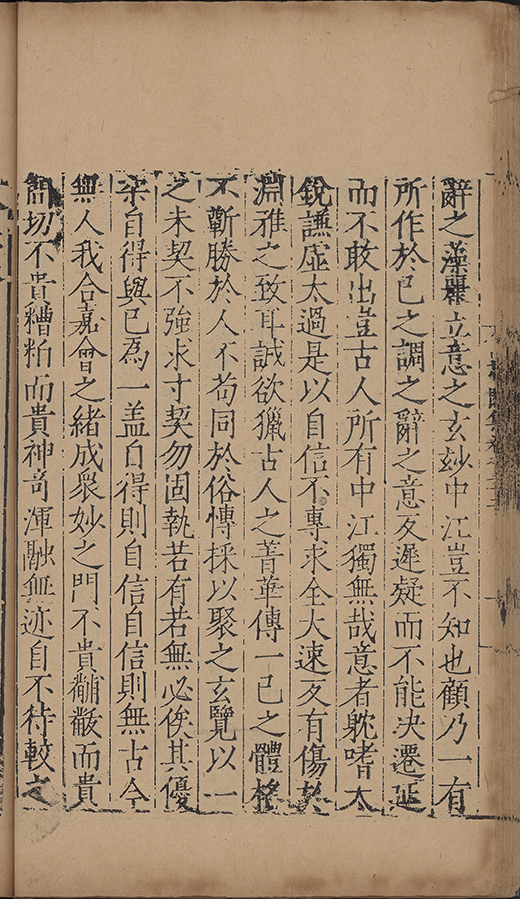 辭之藻麗立意之玄玅中江豈不知也顧乃一有
所作於已之調之辭之意反遲疑而不能决遷延
而不敢出豈古人所有中江獨無哉意者躭嗜太
銳謙虛太過是以自信不專求全大速反有傷於
淵雅之致耳誠欲獵古人之菁華傳一已之體格
不蘄勝於人不苟同於俗慱採以聚之玄覽以一
之未契不強求寸契勿固執若有若無必俟其優
柔自得與已為一盖自得則自信自信則無古今
無人我合嘉會之緒成衆妙之門不貴黼黻而貴
簡切不貴糟粕而貴神竒渾融無迹自不待較之